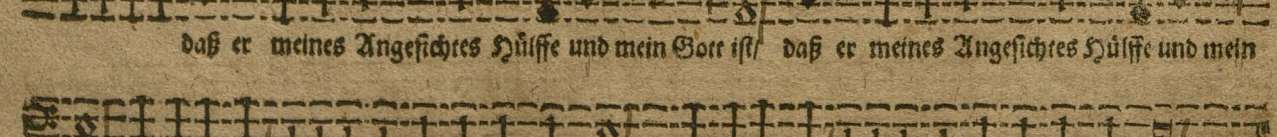 daß er meines Angesichtes Hülffe und mein Gott ist/ daß er meines Angesichtes Hülffe und mein